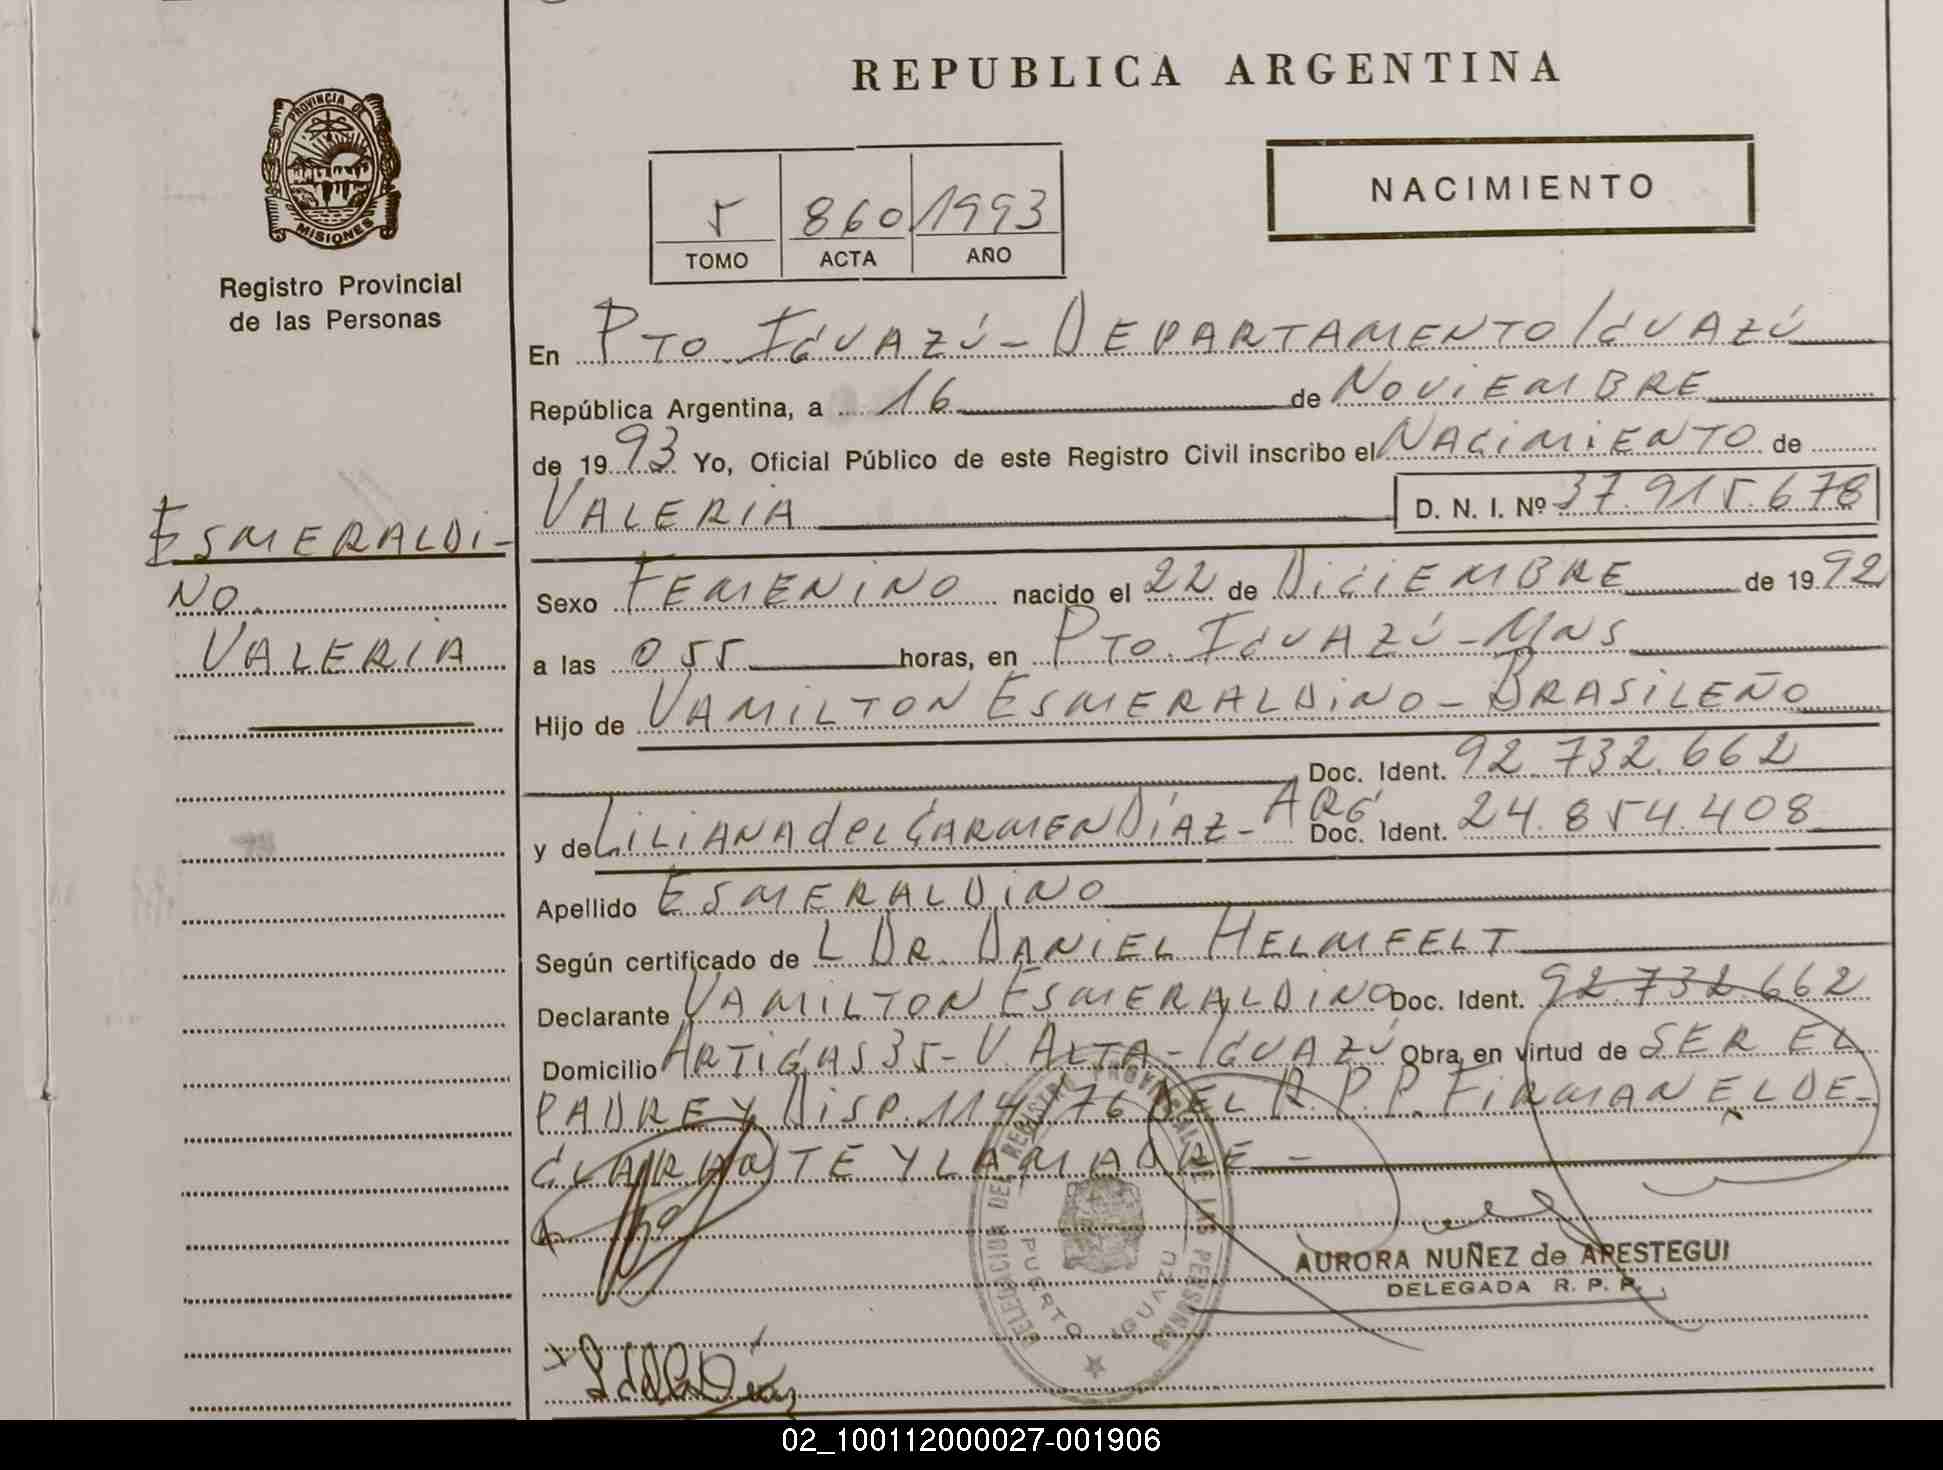 REPUBLICA ARGENTINA
PROVINCIA DE
MISIONES
Registro Provincial
de las Personas
5 860 1993
TOMO ACTA AÑO
NACIMIENTO
En PTO. IGUAZÚ - DEPARTAMENTO IGUAZÚ
República Argentina, a 16 de NOVIEMBRE
de 1993 Yo, Oficial Público de este Registro Civil inscribo el NACIMIENTO de
VALERIA D. N. I. Nº 37.915.678
ESMERALDI-
NO
VALERIA
Sexo FEMENINO nacido el 22 de DICIEMBRE de 1992
a las 0 55 horas, en PTO. IGUAZÚ - MNS
Hijo de VAMILTON ESMERALDINO - BRASILEÑO
Doc. Ident. 92.732.662
y de LILIANA del CARMEN DÍAZ - ARG. Doc. Ident. 24.854.408
Apellido ESMERALDINO
Según certificado de L DR. DANIEL HELMFELT
Declarante VAMILTON ESMERALDINO Doc. Ident. 92.732.662
Domicilio ARTIGAS 35 - V. ALTA - IGUAZÚ Obra en virtud de SER EL
PADRE Y DISP. 114/76 DEL R.P.P. FIRMAN EL DE-
CLARANTE Y LA MADRE -
DELEGACION DEL REGISTRO PROVINCIAL DE LAS PERSONAS
PUERTO IGUAZU
AURORA NUÑEZ de ARESTEGUI
DELEGADA R. P. P.
02_100112000027-001906